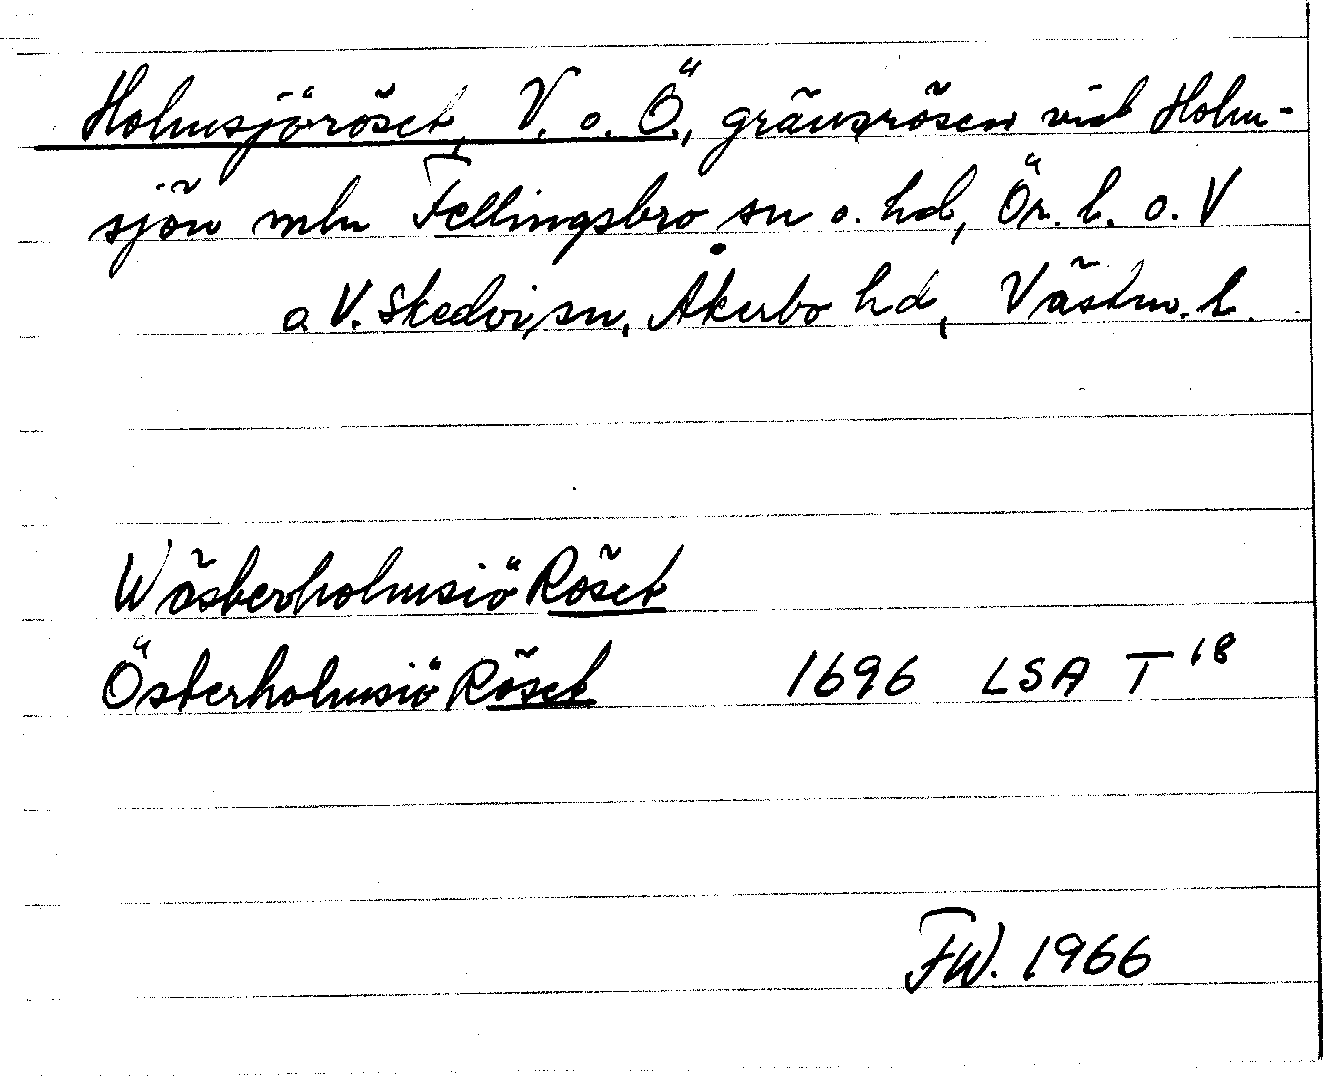 Holmsjöröset, V. o. Ö., gränsrösen vid Holm-
sjön mln Fellingsbro sn o. hd, Ör. l. o. V
o V. Skedvi sn, Åkerbo hd, Västm. l.
WästerholmsiöRöset
ÖsterholmsiöRöset 1696 LSA T 18
FW. 1966